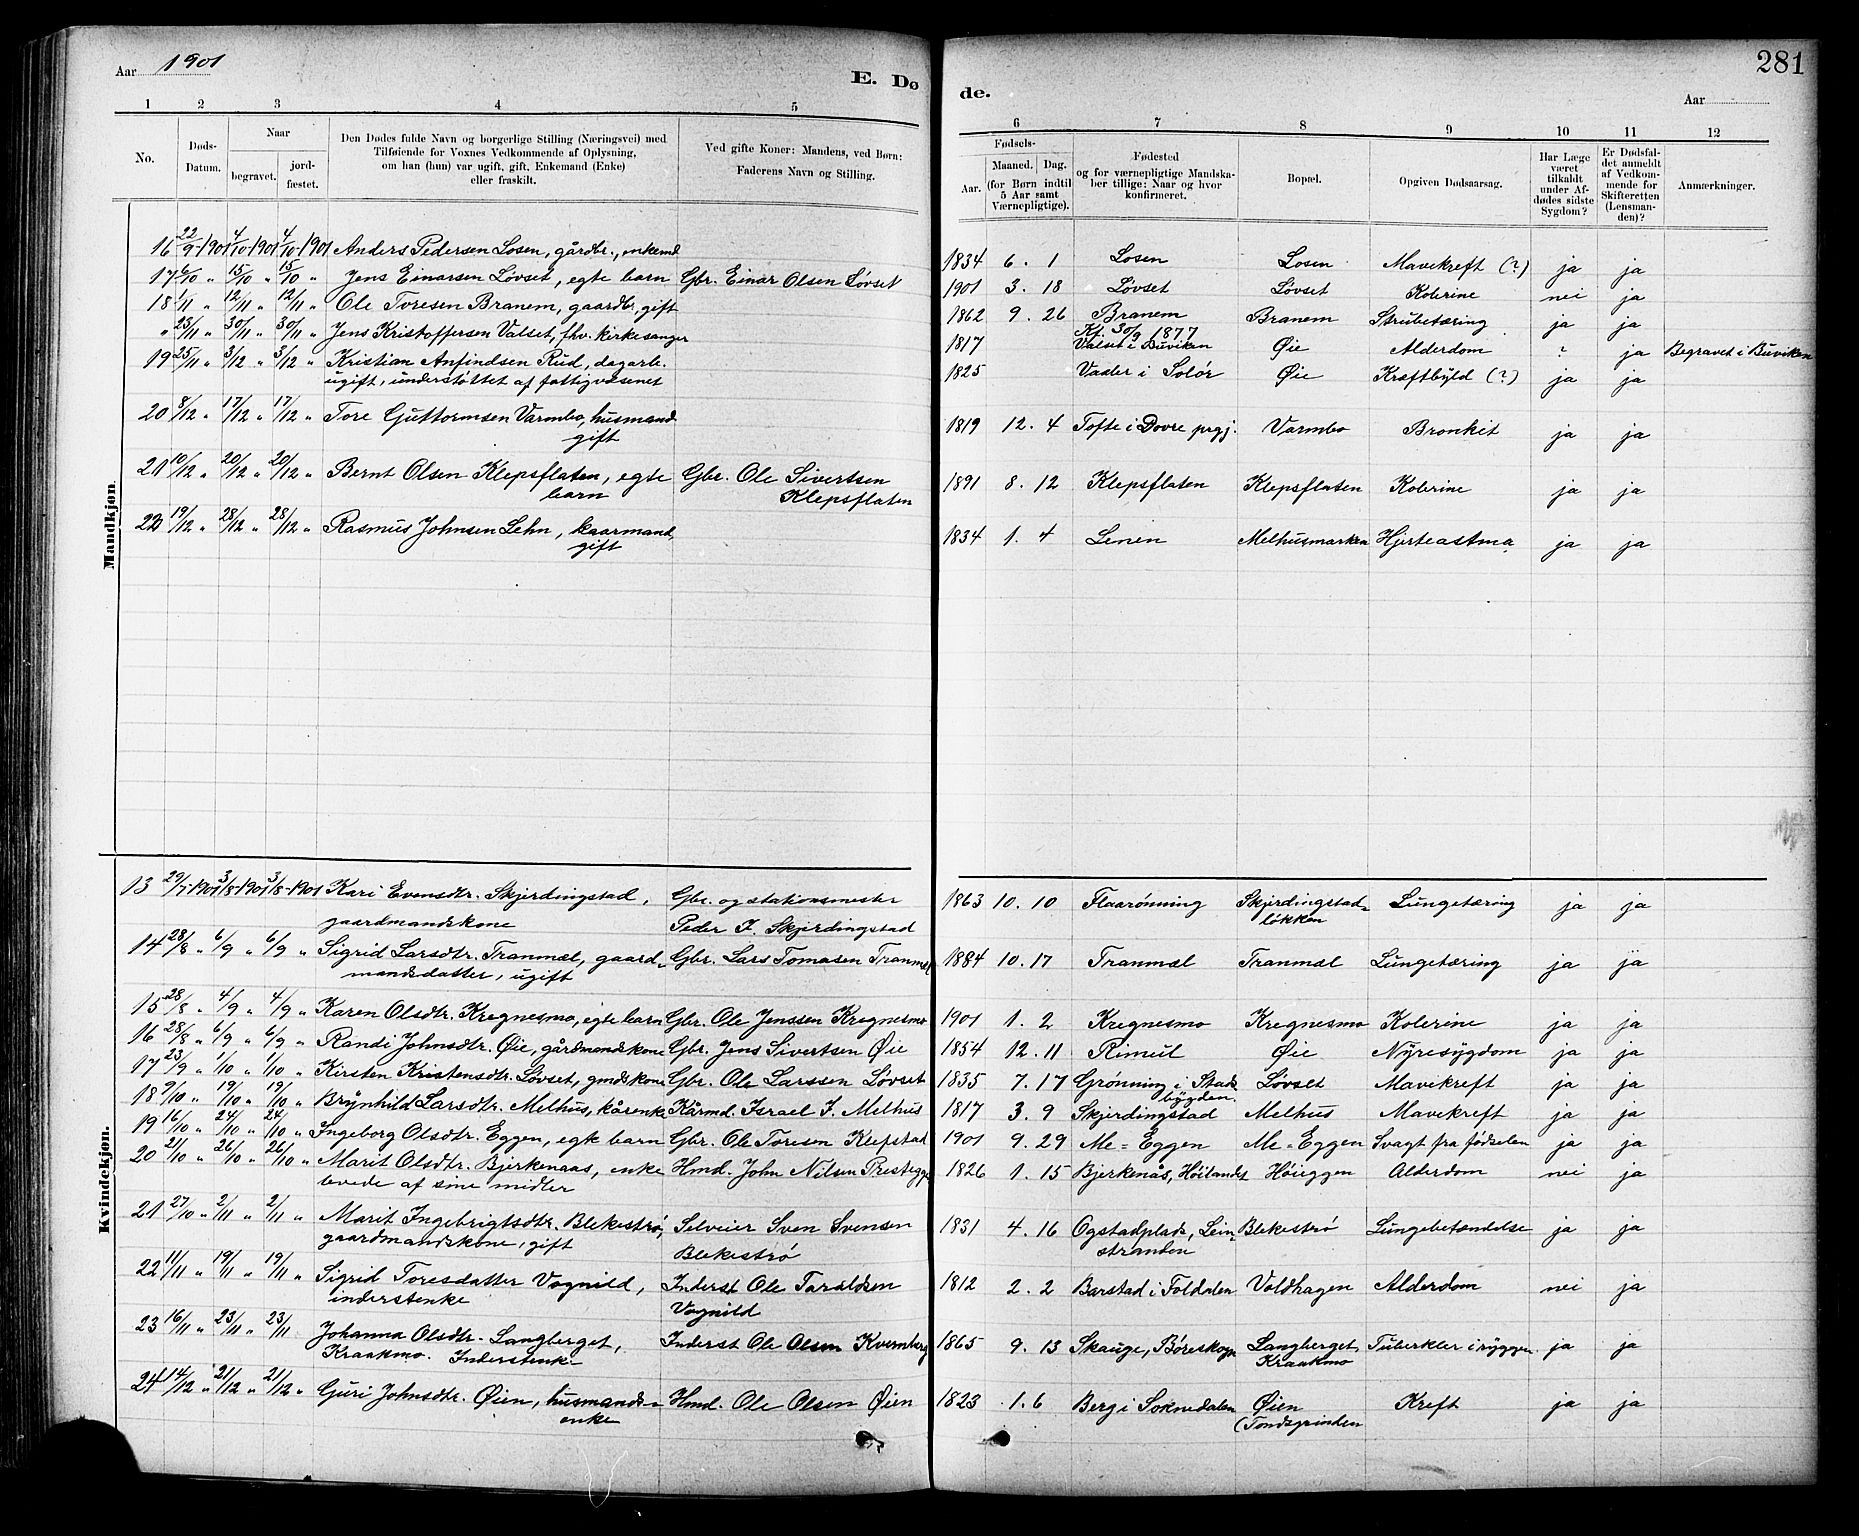 Aar 1901
E. Dø
de.
281
Aar
1 2 3 4 5 6 7 8 9 10 11 12
No.
Døds-Datum.
Naar
begravet.
jord-fæstet.
Den Dødes fulde Navn og borgerlige Stilling (Næringsvei) med
Tilføiende for Voxnes Vedkommende af Oplysning,
om han (hun) var ugift, gift, Enkemand (Enke)
eller fraskilt.
Ved gifte Koner: Mandens, ved Børn:
Faderens Navn og Stilling.
Fødsels-
Aar.
Maaned. Dag.
(for Børn indtil
5 Aar samt
Værnepligtige).
Fødested
og for værnepligtige Mandska-
ber tillige: Naar og hvor
konfirmeret.
Bopæl.
Opgiven Dødsaarsag.
Har Læge
været
tilkaldt
under Af-
dødes sidste
Sygdom?
Er Dødsfal-
det anmeldt
af Vedkom-
mende for
Skifteretten
(Lensman-
den)?
Anmærkninger.
Mandkjøn.
16 22/9-1901 4/10-1901 4/10-1901 Anders Pedersen Losen, gårdbr., enkemd 1834 6. 1 Losen Losen Mavekreft (?) ja ja
17 6/10 " 15/10 " 15/10 " Jens Einarsen Løvset, egte barn Gbr. Einar Olsen Løvset 1901 3. 18 Løvset Løvset Kolerine nei ja
18 1/11 " 12/11 " 12/11 " Ole Toresen Branem, gaardbr., gift 1862 9. 26 Branem Branem Strubetæring ja ja
Kf. 30/9 1877
" 23/11 " 30/11 " 30/11 " Jens Kristoffersen Valset, fhv. kirkesanger 1817 Valset i Buviken Øie Alderdom ? ja Begravet i Buviken
19 25/11 " 3/12 " 3/12 " Kristian Anfindsen Rud, dagarb. 1825 Vaaler i Solør Øie Kræftbyld (?) ja ja
ugift, understøttet af fattigvæsenet
20 8/12 " 17/12 " 17/12 " Tore Guttormsen Varmbo, husmand 1819 12. 4 Tofte i Dovre prgj. Varmbo Bronkit ja ja
gift
21 10/12 " 20/12 " 20/12 " Bernt Olsen Klepsflaten, egte Gbr. Ole Sivertsen 1891 8. 12 Klepsflaten Klepsflaten Kolerine ja ja
barn Klepsflaten
22 19/12 " 28/12 " 28/12 " Rasmus Johnsen Lehn, kaarmand, 1834 1. 4 Lenen Melhusmarken Hjerteastma ja ja
gift
Kvindekjøn.
13 29/7-1901 3/8-1901 3/8-1901 Kari Evensdtr. Skjerdingstad, Gbr. og stationsmester 1863 10. 10 Flaarønning Skjerdingstad- Lungetæring ja ja
gaardmandskone Peder I. Skjerdingstad løkken
14 28/8 " 6/9 " 6/9 " Sigrid Larsdtr. Tranmæl, gaard- Gbr. Lars Tomasen Tranmæl 1884 10. 17 Tranmæl Tranmæl Lungetæring ja ja
mandsdatter, ugift
15 28/8 " 4/9 " 4/9 " Karen Olsdtr. Kregnesmo, egte barn Gbr. Ole Jenssen Kregnesmo 1901 1. 2 Kregnesmo Kregnesmo Kolerine ja ja
16 28/8 " 6/9 " 6/9 " Randi Johnsdtr. Øie, gårdmandskone Gbr. Jens Sivertsen Øie 1854 12. 11 Rimul Øie Nyresygdom ja ja
17 23/9 " 1/10 " 1/10 " Kirsten Kristensdtr. Løvset, gmdskone Gbr. Ole Larssen Løvset 1835 7. 17 Grønning i Stads- Løvset Mavekreft ja ja
bygden
18 9/10 " 19/10 " 19/10 " Brynhild Larsdtr. Melhus, kårenke Kårmd. Israel I. Melhus 1817 3. 9 Skjerdingstad Melhus Mavekreft ja ja
19 16/10 " 24/10 " 24/10 " Ingeborg Olsdtr. Eggen, egte barn Gbr. Ole Toresen Klefstad 1901 9. 29 Me-Eggen Me-Eggen Svagt fra fødselen ja ja
20 21/10 " 26/10 " 26/10 " Marit Olsdtr. Bjerkenaas, enke Hmd. John Nilsen Prestegge 1826 1. 15 Bjerkenås, Høilandet Høieggen Alderdom nei ja
levede af sine midler
21 27/10 " 2/11 " 2/11 " Marit Ingebrigtsdtr. Blekestrø, Selveier Sven Svensen 1831 4. 16 Ogstadplads, Lein- Blekestrø Lungebetændelse ja ja
gaardmandskone, gift Blekestrø stranden
22 11/11 " 19/11 " 19/11 " Sigrid Toresdatter Vognild, Inderst Ole Taraldsen 1812 2. 2 Barstad i Foldalen Voldhagen Alderdom nei ja
inderstenke Vognild
23 16/11 " 23/11 " 23/11 " Johanna Olsdtr. Langberget, Inderst Ole Olsen Kvernberg 1865 9. 13 Skauge, Børeskogn Langberget, Tuberkler i ryggen ja ja
Kraakmo. Inderstenke Kraakmo
24 14/12 " 21/12 " 21/12 " Guri Johnsdtr. Øien, husmands- Hmd. Ole Olsen Øien 1823 1. 6 Berg i Soknedalen Øien Kreft ja ja
enke